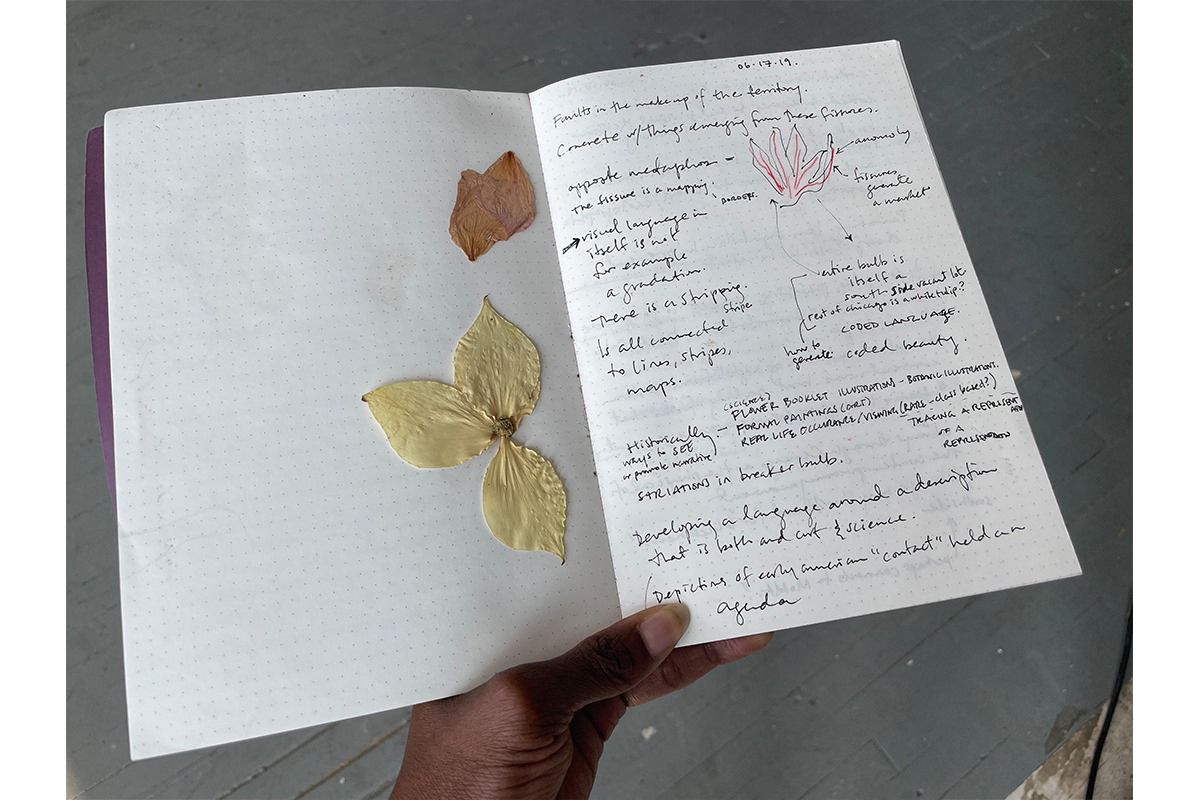 06.17.19.
Faults in the makeup of the territory.
Concrete w/things emerging from these fissures.
opposite metaphor –
The fissure is a mapping.
BORDERS.
anomoly
fissures
generate
a market
visual language in
itself is not
for example
a gradation.
There is a stripping.
stripe
Is all connected
to lines, stripes,
maps.
entire bulb is
itself a
south side vacant lot.
rest of chicago is a white tulip?
CODED LANGUAGE.
how to
generate coded beauty.
Historically
ways to SEE
or promote narrative
(SCIENCE)
FLOWER BOOKLET ILLUSTRATIONS – BOTANIC ILLUSTRATIONS.
– FORMAL PAINTINGS (ART)
REAL LIFE OCCURANCE/VIEWING (RARE – class based?)
TRACING A
OF A
VARIATIONS in breaker bulb.
Developing a language around a description
that is both and art & science.
Depictions of early american "contact" held an
agenda